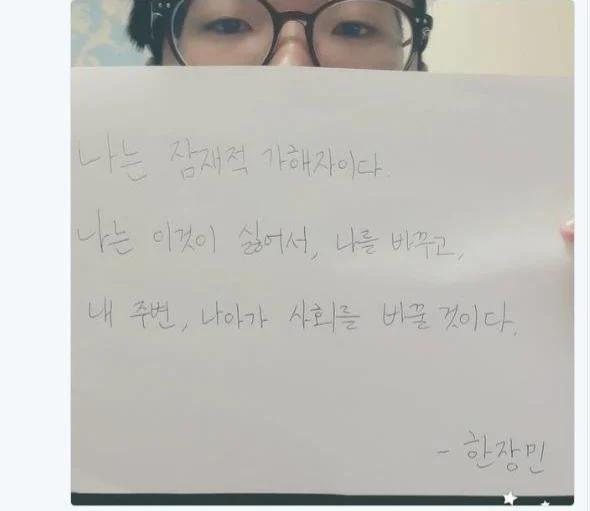 나는 잠재적 가해자이다.
나는 이것이 싫어서, 나를 바꾸고,
내 주변, 나아가 사회를 바꿀 것이다.
- 한장민